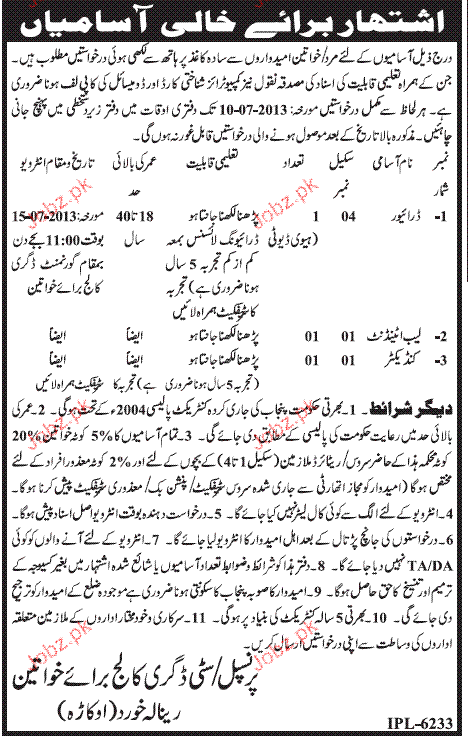 اشتہار برائے خالی آسامیاں
درج ذیل آسامیوں کے لئے مرد/خواتین امیدواروں سے سادہ کاغذ پر ہاتھ سے لکھی ہوئی درخواستیں مطلوب ہیں۔
جن کے ہمراہ تعلیمی قابلیت کی اسناد کی مصدقہ نقول نیز کمپیوٹرائز شناختی کارڈ اور ڈومیسائل کی کاپی لف ہونا ضروری
ہے۔ ہر لحاظ سے مکمل درخواستیں مورخہ: 10-07-2013 تک دفتری اوقات میں دفتر زیر دستخطی میں پہنچ جانی
چاہئیں۔ مذکورہ بالا تاریخ کے بعد موصول ہونے والی درخواستیں قابل غور نہ ہوں گی۔
نمبر شمار نام آسامی سکیل نمبر تعداد تعلیمی قابلیت عمر کی بالائی حد تاریخ و مقام انٹرویو
1- ڈرائیور 04 1 پڑھنا لکھنا جانتا ہو 18 تا 40 مورخہ: 15-07-2013
(ہیوی ڈیوٹی ڈرائیونگ لائسنس بمعہ سال بوقت 11:00 بجے دن
کم از کم تجربہ 5 سال بمقام گورنمنٹ ڈگری
ہونا ضروری ہے) تجربہ کالج برائے خواتین
کا سرٹیفکیٹ ہمراہ لائیں
2- لیب اٹینڈنٹ 01 01 پڑھنا لکھنا جانتا ہو ایضاً ایضاً
3- کنڈیکٹر 01 01 پڑھنا لکھنا جانتا ہو ایضاً ایضاً
(تجربہ 5 سال ہونا ضروری ہے) تجربہ کا سرٹیفکیٹ ہمراہ لائیں
دیگر شرائط۔ 1۔ بھرتی حکومت پنجاب کی جاری کردہ کنٹریکٹ پالیسی 2004ء کے تحت ہو گی۔ 2۔ عمر کی
بالائی حد میں رعایت حکومت کی پالیسی کے مطابق دی جائے گی۔ 3۔ تمام آسامیوں کا 5% کوٹہ خواتین 20%
کوٹہ محکمہ ہذا کے حاضر سروس/ریٹائرڈ ملازمین (سکیل 1 تا 4) کے بچوں کے لئے اور 2% کوٹہ معذور افراد کے لئے
مختص ہو گا (امیدوار کو مجاز اتھارٹی سے جاری شدہ سروس سرٹیفکیٹ/پنشن بک/معذوری سرٹیفکیٹ پیش کرنا ہو گا۔
4۔ انٹرویو کے لئے الگ سے کوئی کال لیٹر نہیں کیا جائے گا۔ 5۔ درخواست دہندہ بوقت انٹرویو اصل اسناد پیش ہو گا۔
6۔ درخواستوں کی جانچ پڑتال کے بعد اہل امیدوار کا انٹرویو لیا جائے گا۔ 7۔ انٹرویو کے لئے آنے والوں کو کوئی
TA/DA نہیں دیا جائے گا۔ 8۔ دفتر ہذا کو شرائط و ضوابط تعداد آسامیوں یا شائع شدہ اشتہار میں بغیر کسی وجہ کے
ترمیم اور تنسیخ کا حق حاصل ہو گا۔ 9۔ امیدوار کا صوبہ پنجاب کا سکونتی ہونا ضروری ہے موجودہ ضلع کے امیدوار کو ترجیح
دی جائے گی۔ 10۔ بھرتی 5 سالہ کنٹریکٹ کی بنیاد پر ہو گی۔ 11۔ سرکاری و خود مختار اداروں کے ملازمین متعلقہ
اداروں کی وساطت سے اپنی درخواستیں ارسال کریں۔
پرنسپل/سٹی ڈگری کالج برائے خواتین
رینالہ خورد (اوکاڑہ)
IPL-6233
Jobz.pk